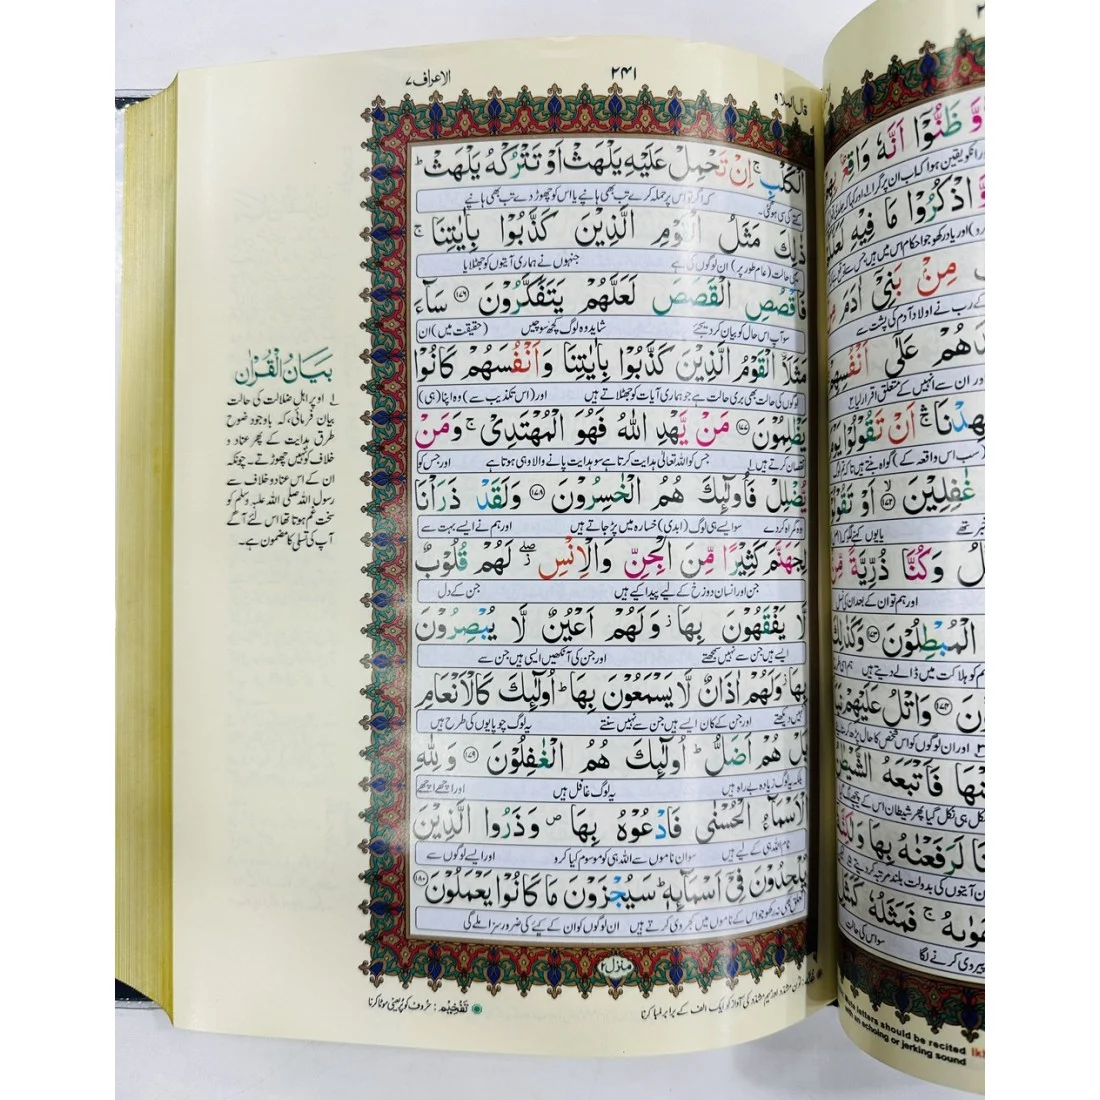 الاعراف ۷
۲۴۱
قال الملا ۹
الْكَلْبِ ۚ اِنْ تَحْمِلْ عَلَيْهِ يَلْهَثْ اَوْ تَتْرُكْهُ يَلْهَثْ ؕ
کتے کی سی ہوگئی۔ کہ اگر تو اس پر حملہ کرے تب بھی ہانپے یا اس کو چھوڑ دے تب بھی ہانپے
ذٰلِكَ مَثَلُ الْقَوْمِ الَّذِيْنَ كَذَّبُوْا بِاٰيٰتِنَا ۚ
یہی حالت (عام طور پر) ان لوگوں کی ہے جنہوں نے ہماری آیتوں کو جھٹلایا
فَاقْصُصِ الْقَصَصَ لَعَلَّهُمْ يَتَفَكَّرُوْنَ ﴿۱۷۶﴾ سَآءَ
سو آپ اس حال کو بیان کر دیجئے شاید وہ لوگ کچھ سوچیں (حقیقت میں) ان
مَثَلًا اۨلْقَوْمُ الَّذِيْنَ كَذَّبُوْا بِاٰيٰتِنَا وَاَنْفُسَهُمْ كَانُوْا
لوگوں کی حالت بھی بری حالت ہے جو ہماری آیات کو جھٹلاتے ہیں اور (اس تکذیب سے) وہ اپنا (ہی)
يَظْلِمُوْنَ ﴿۱۷۷﴾ مَنْ يَّهْدِ اللّٰهُ فَهُوَ الْمُهْتَدِىْ ۚ وَمَنْ
نقصان کرتے ہیں ۱ جس کو اللہ تعالیٰ ہدایت کرتا ہے سو ہدایت پانے والا وہی ہوتا ہے اور جس کو
يُّضْلِلْ فَاُولٰٓئِكَ هُمُ الْخٰسِرُوْنَ ﴿۱۷۸﴾ وَلَقَدْ ذَرَاْنَا
وہ گمراہ کر دے سو ایسے ہی لوگ (ابدی) خسارہ میں پڑ جاتے ہیں اور ہم نے ایسے بہت سے
لِجَهَنَّمَ كَثِيْرًا مِّنَ الْجِنِّ وَالْاِنْسِ ۖ لَهُمْ قُلُوْبٌ
جن اور انسان دوزخ کے لیے پیدا کیے ہیں جن کے دل
لَّا يَفْقَهُوْنَ بِهَا ؗ وَلَهُمْ اَعْيُنٌ لَّا يُبْصِرُوْنَ
ایسے ہیں جن سے نہیں سمجھتے اور جن کی آنکھیں ایسی ہیں جن سے
بِهَا ؗ وَلَهُمْ اٰذَانٌ لَّا يَسْمَعُوْنَ بِهَا ؕ اُولٰٓئِكَ كَالْاَنْعَامِ
نہیں دیکھتے اور جن کے کان ایسے ہیں جن سے نہیں سنتے یہ لوگ چوپایوں کی طرح ہیں
بَلْ هُمْ اَضَلُّ ؕ اُولٰٓئِكَ هُمُ الْغٰفِلُوْنَ ﴿۱۷۹﴾ وَلِلّٰهِ
بلکہ یہ لوگ زیادہ بے راہ ہیں یہ لوگ غافل ہیں اور اچھے اچھے
الْاَسْمَآءُ الْحُسْنٰى فَادْعُوْهُ بِهَا ۖ وَذَرُوا الَّذِيْنَ
نام اللہ ہی کے لیے ہیں سو ان ناموں سے اللہ ہی کو موسوم کیا کرو اور ایسے لوگوں سے
يُلْحِدُوْنَ فِىْٓ اَسْمَآئِهٖ ؕ سَيُجْزَوْنَ مَا كَانُوْا يَعْمَلُوْنَ ﴿۱۸۰﴾
تعلق بھی نہ رکھو جو اس کے ناموں میں کجروی کرتے ہیں ان لوگوں کو ان کے کیئے کی ضرور سزا ملے گی
منزل ۲
بَيَانُ الْقُرْاٰن
۱ اوپر اہل ضلالت کی حالت
بیان فرمائی، کہ باوجود وضوح
طرق ہدایت کے پھر عناد و
خلاف کو نہیں چھوڑتے۔ چونکہ
ان کے اس عناد و خلاف سے
رسول اللہ صلی اللہ علیہ وسلم کو
سخت غم ہوتا تھا اس لئے آگے
آپ کی تسلی کا مضمون ہے۔
نون مشدد اور میم مشدد کی آواز کو ایک الف کے برابر لمبا کرنا
تفخیم: حروف کو پُر یعنی موٹا کرنا
وَّظَنُّوْٓا اَنَّهٗ وَاقِعٌۢ
وَّاذْكُرُوْا مَا فِيْهِ لَعَلَّكُمْ
مِنْۢ بَنِىْٓ اٰدَمَ مِنْ
کے رب نے اولاد آدم کی پشت سے
عَلٰٓى اَنْفُسِهِمْ
اور ان سے انہیں کے متعلق اقرار لیا
شَهِدْنَا ۛ اَنْ تَقُوْلُوْا يَوْمَ
غٰفِلِيْنَ ﴿۱۷۲﴾ اَوْ تَقُوْلُوْٓا
وَكُنَّا ذُرِّيَّةً مِّنْ
اور ہم تو ان کے بعد ان کی نسل
الْمُبْطِلُوْنَ ﴿۱۷۳﴾ وَكَذٰلِكَ
ہم کو ہلاکت میں ڈالے دیتے ہیں
﴿۱۷۴﴾ وَاتْلُ عَلَيْهِمْ نَبَاَ
اور ان لوگوں کو اس شخص کا حال پڑھ کر
مِنْهَا فَاَتْبَعَهُ الشَّيْطٰنُ
لَرَفَعْنٰهُ بِهَا وَلٰكِنَّهٗٓ
هَوٰىهُ ۚ فَمَثَلُهٗ كَمَثَلِ
پیروی کرنے لگا سو اس کی حالت
letters should be recited
with an echoing or jerking sound